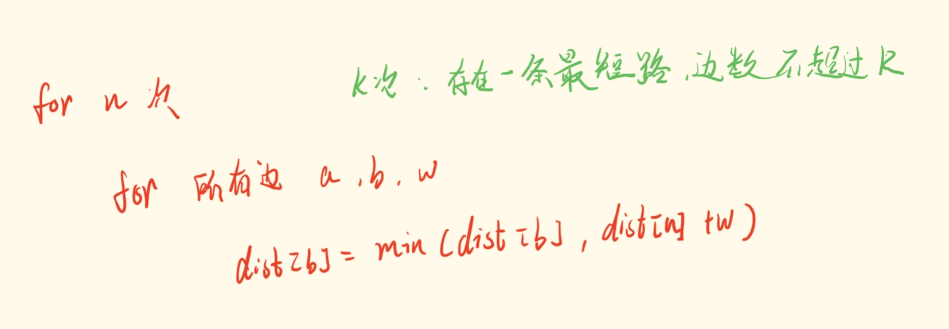 for n 次
k次：存在一条最短路，边数不超过k
for 所有边 a,b,w
dist[b] = min(dist[b], dist[a]+w)